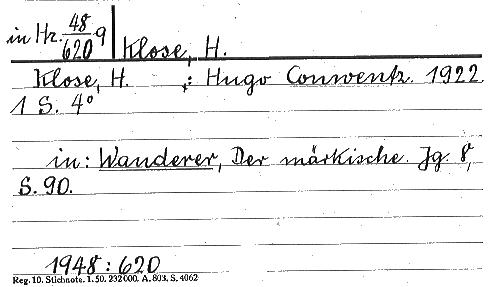 in Hz. 48/620 q Klose, H.
Klose, H. ,: Hugo Conwentz. 1922.
1 S. 4°
in: Wanderer, Der märkische. Jg. 8,
S. 90.
1948 : 620
Reg. 10. Stichnote. 1. 50. 232000. A. 803. S. 4062